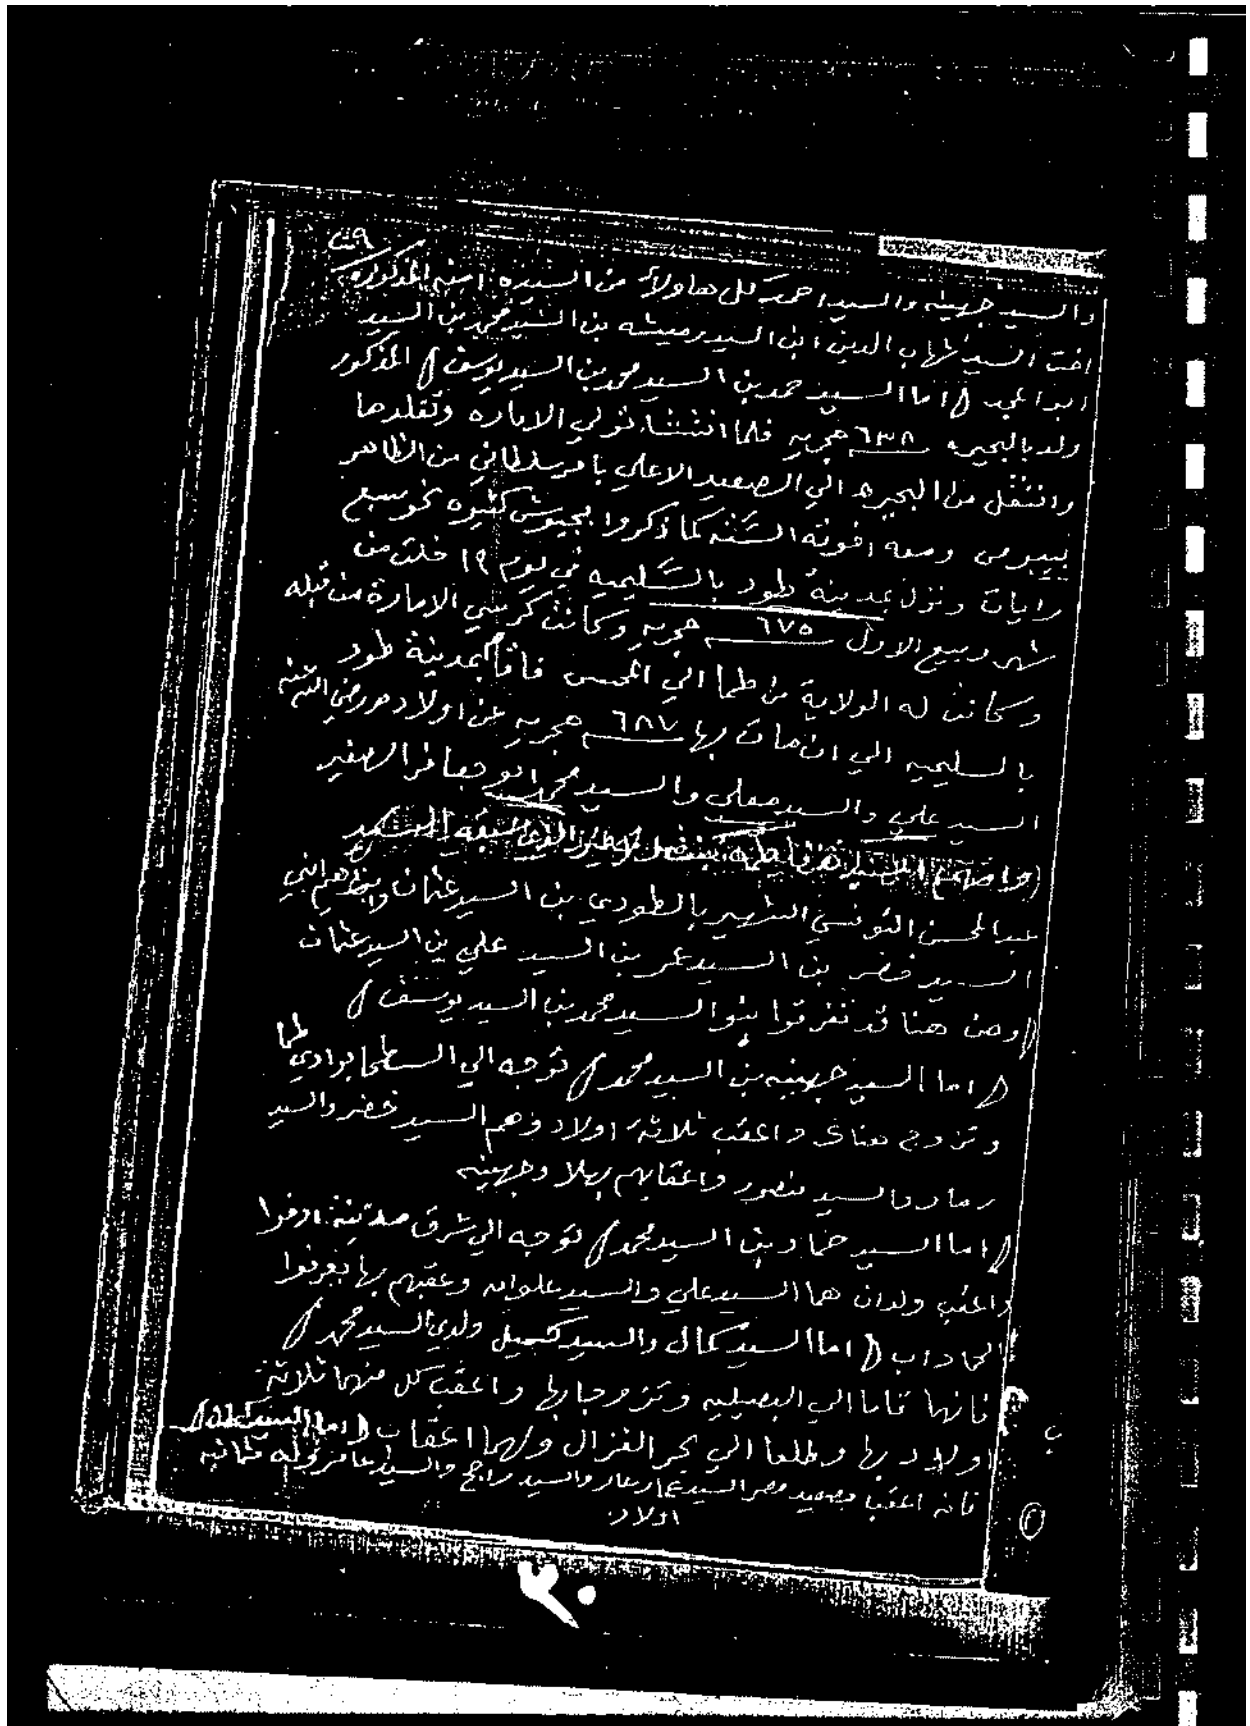 والسيد جهينه والسيد احمد كل هاولاء من السيده امنه المذكوره
اخت السيد شهاب الدين ابن السيد رميثه بن السيد محمد بن السيد
ابوا اما السيد حمد بن السيد محمد بن السيد يوسف المذكور
ولد بالبحيره ٦٣٨ هجريه فلما انتشا تولي الاماره وتقلدها
وانتقل من البحيره الي الصعيد الاعلي بامر سلطاني من الظاهر
بيبرس ومعه اخوته السته كما ذكروا بجيوش كثيره نحو سبع
رايات ونزل بمدينة طود بالسليميه في يوم ١٩ خلت من
شهر ربيع الاول ٦٧٥ هجريه وكانت كرسي الامارة من قبله
وكانت له الولاية من طما الي فاقام بمدينة طود
بالسليميه الي ان مات بها ٦٨٧ هجريه عن اولاده رضي الله عنه
السيد علي والسيد معلي والسيد محمد ابو جعافر الصغير
عبد المحسن التونسي الشهير بالطودي بن السيد عثمان
السيد خضر بن السيد عمر بن السيد علي بن السيد عثمان
ومن هنا قد تفرقوا بنوا السيد محمد بن السيد يوسف
اما السيد جهينه بن السيد محمد توجه الي بوادي طما
وتزوج هناك واعقب ثلاثة اولاد وهم السيد خضر والسيد
والسيد منصور واعقابهم جهينه
اما السيد حماد بن السيد محمد توجه الي شرق مدينة ادفوا
واعقب ولدان هما السيد علي والسيد علوان وعقبهم بها يعرفوا
الحماداب اما السيد كمال والسيد ولدي السيد محمد
فانهما قاما الي البصيليه وتزوجا بها واعقب كل منهما ثلاثة
اولاد بها وطلعا الي بحر الغزال ولهما اعقاب اما السيد
فانه اعقب بصعيد مصر السيد والسيد راجح والسيد عامر وله ثمانيه
اولاد
٢٠